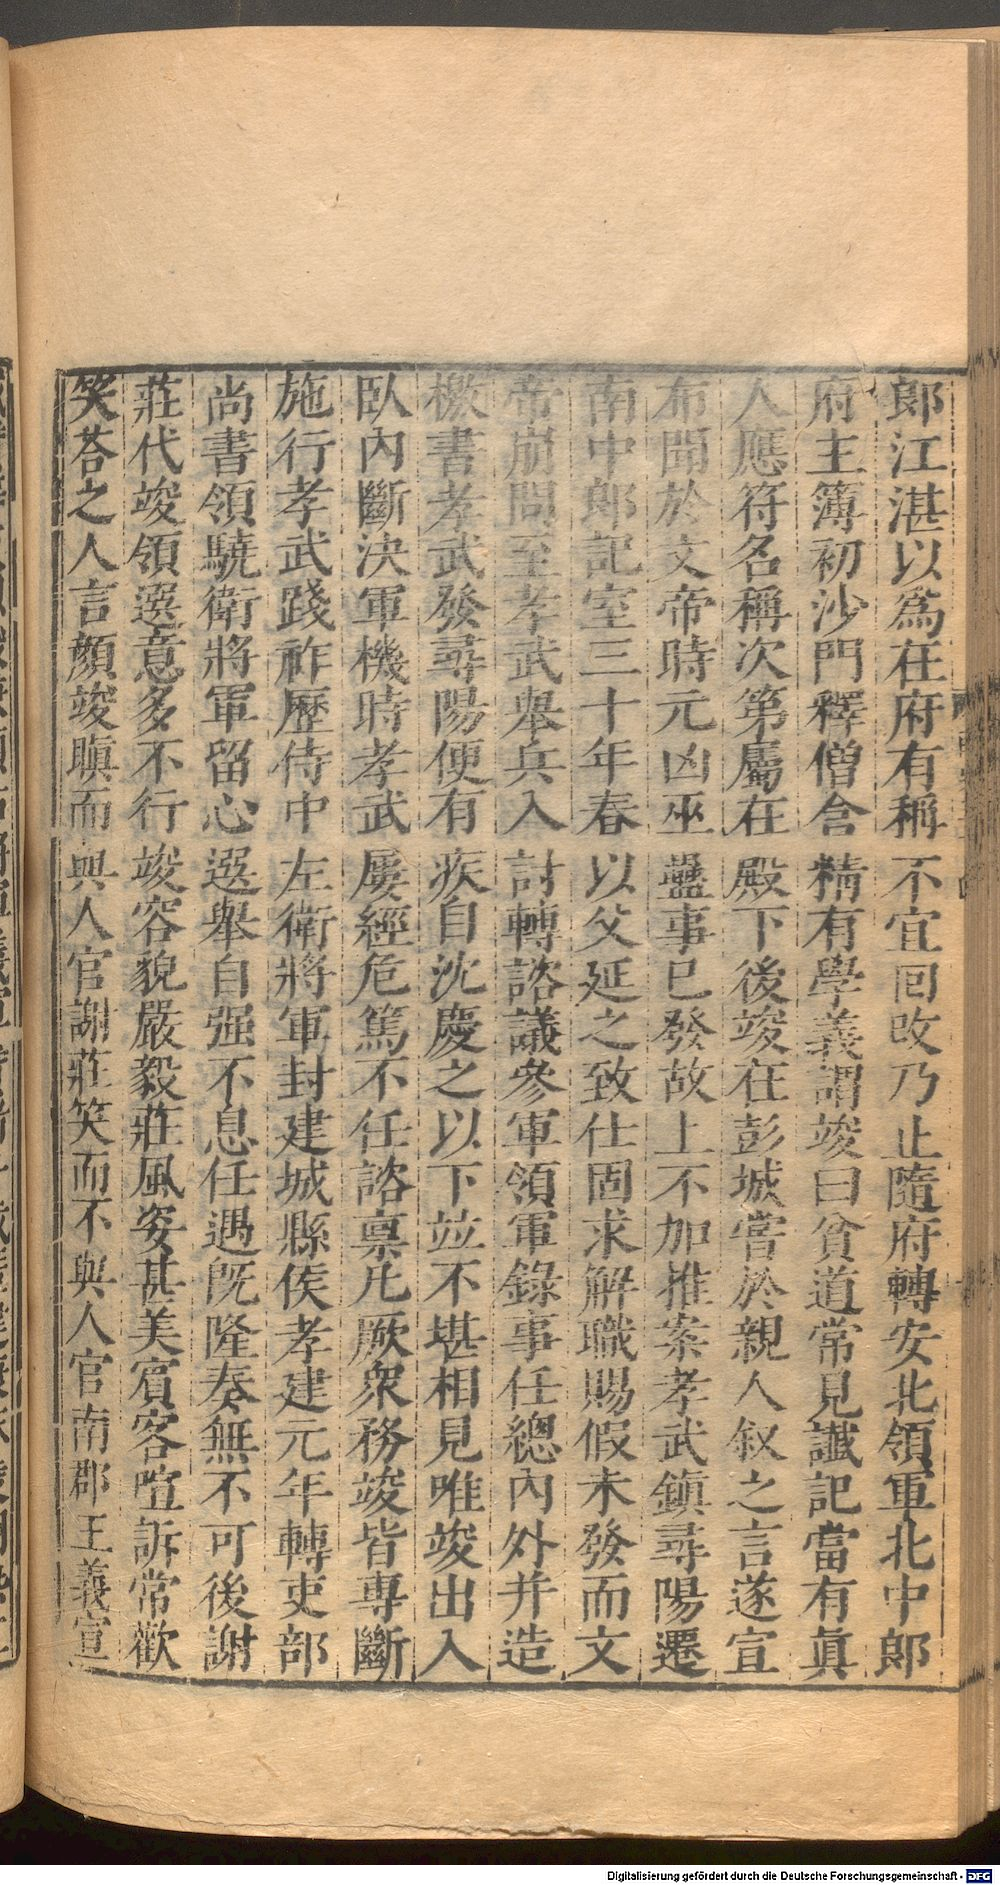 郞江湛以爲在府有稱不宜回改乃止隨府轉安北領軍北中郞
府主簿初沙門釋僧含精有學義謂竣曰貧道常見讖記當有眞
人應符名稱次第屬在殿下後竣在彭城嘗於親人叙之言遂宣
布聞於文帝時元凶巫蠱事已發故上不加推案孝武鎭尋陽遷
南中郞記室三十年春以父延之致仕固求解職賜假未發而文
帝崩問至孝武舉兵入討轉諮議參軍領軍錄事任總內外并造
檄書孝武發尋陽便有疾自沈慶之以下並不堪相見唯竣出入
臥內斷決軍機時孝武屢經危篤不任諮稟凡厥衆務竣皆專斷
施行孝武踐祚歷侍中左衛將軍封建城縣侯孝建元年轉吏部
尚書領驍衛將軍留心選舉自强不息任遇旣隆奏無不可後謝
莊代竣領選意多不行竣容貌嚴毅莊風姿甚美賓客喧訴常歡
笑荅之人言顏竣瞋而與人官謝莊笑而不與人官南郡王義宣
Digitalisierung gefördert durch die Deutsche Forschungsgemeinschaft - DFG